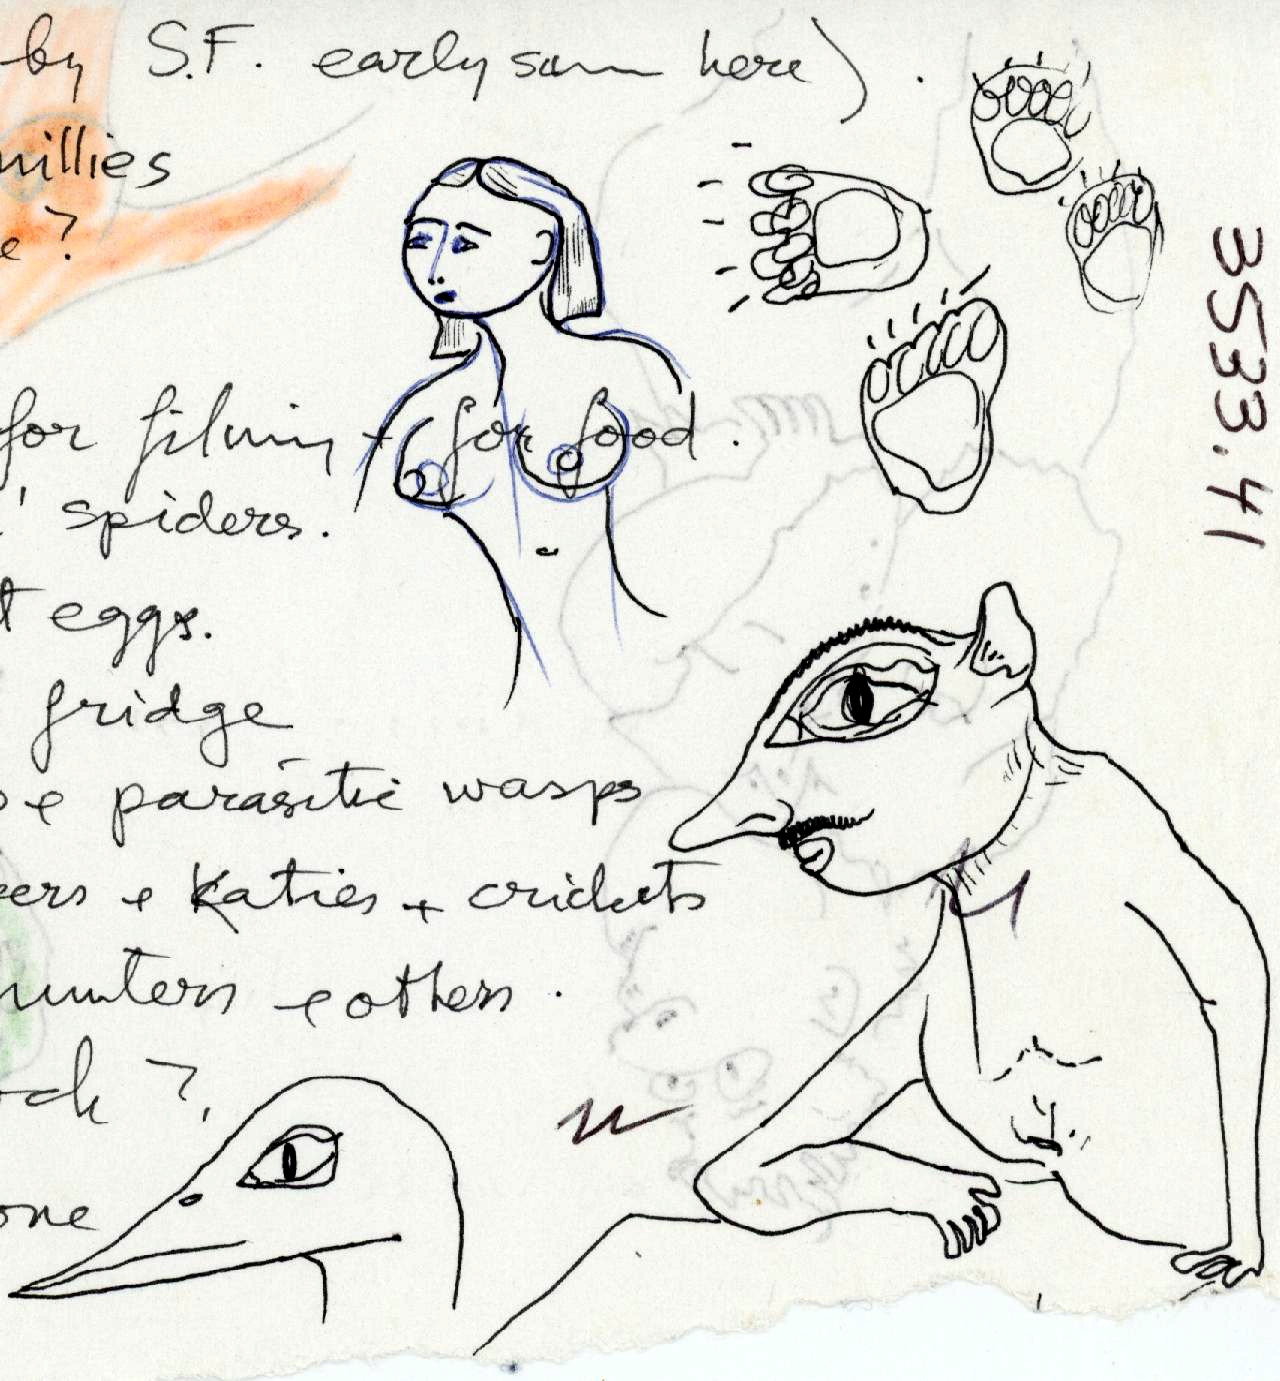 by S.F. early sum here).
millies
e?
for filming + for food.
' spiders.
t eggs.
fridge
e parasitic wasps
eers + Katies + crickets
hunters + others.
ock?
one
3533.41